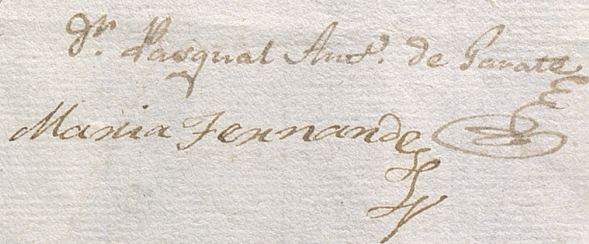 Dr. Pasqual Anto. de Garate
Maria Fernandez